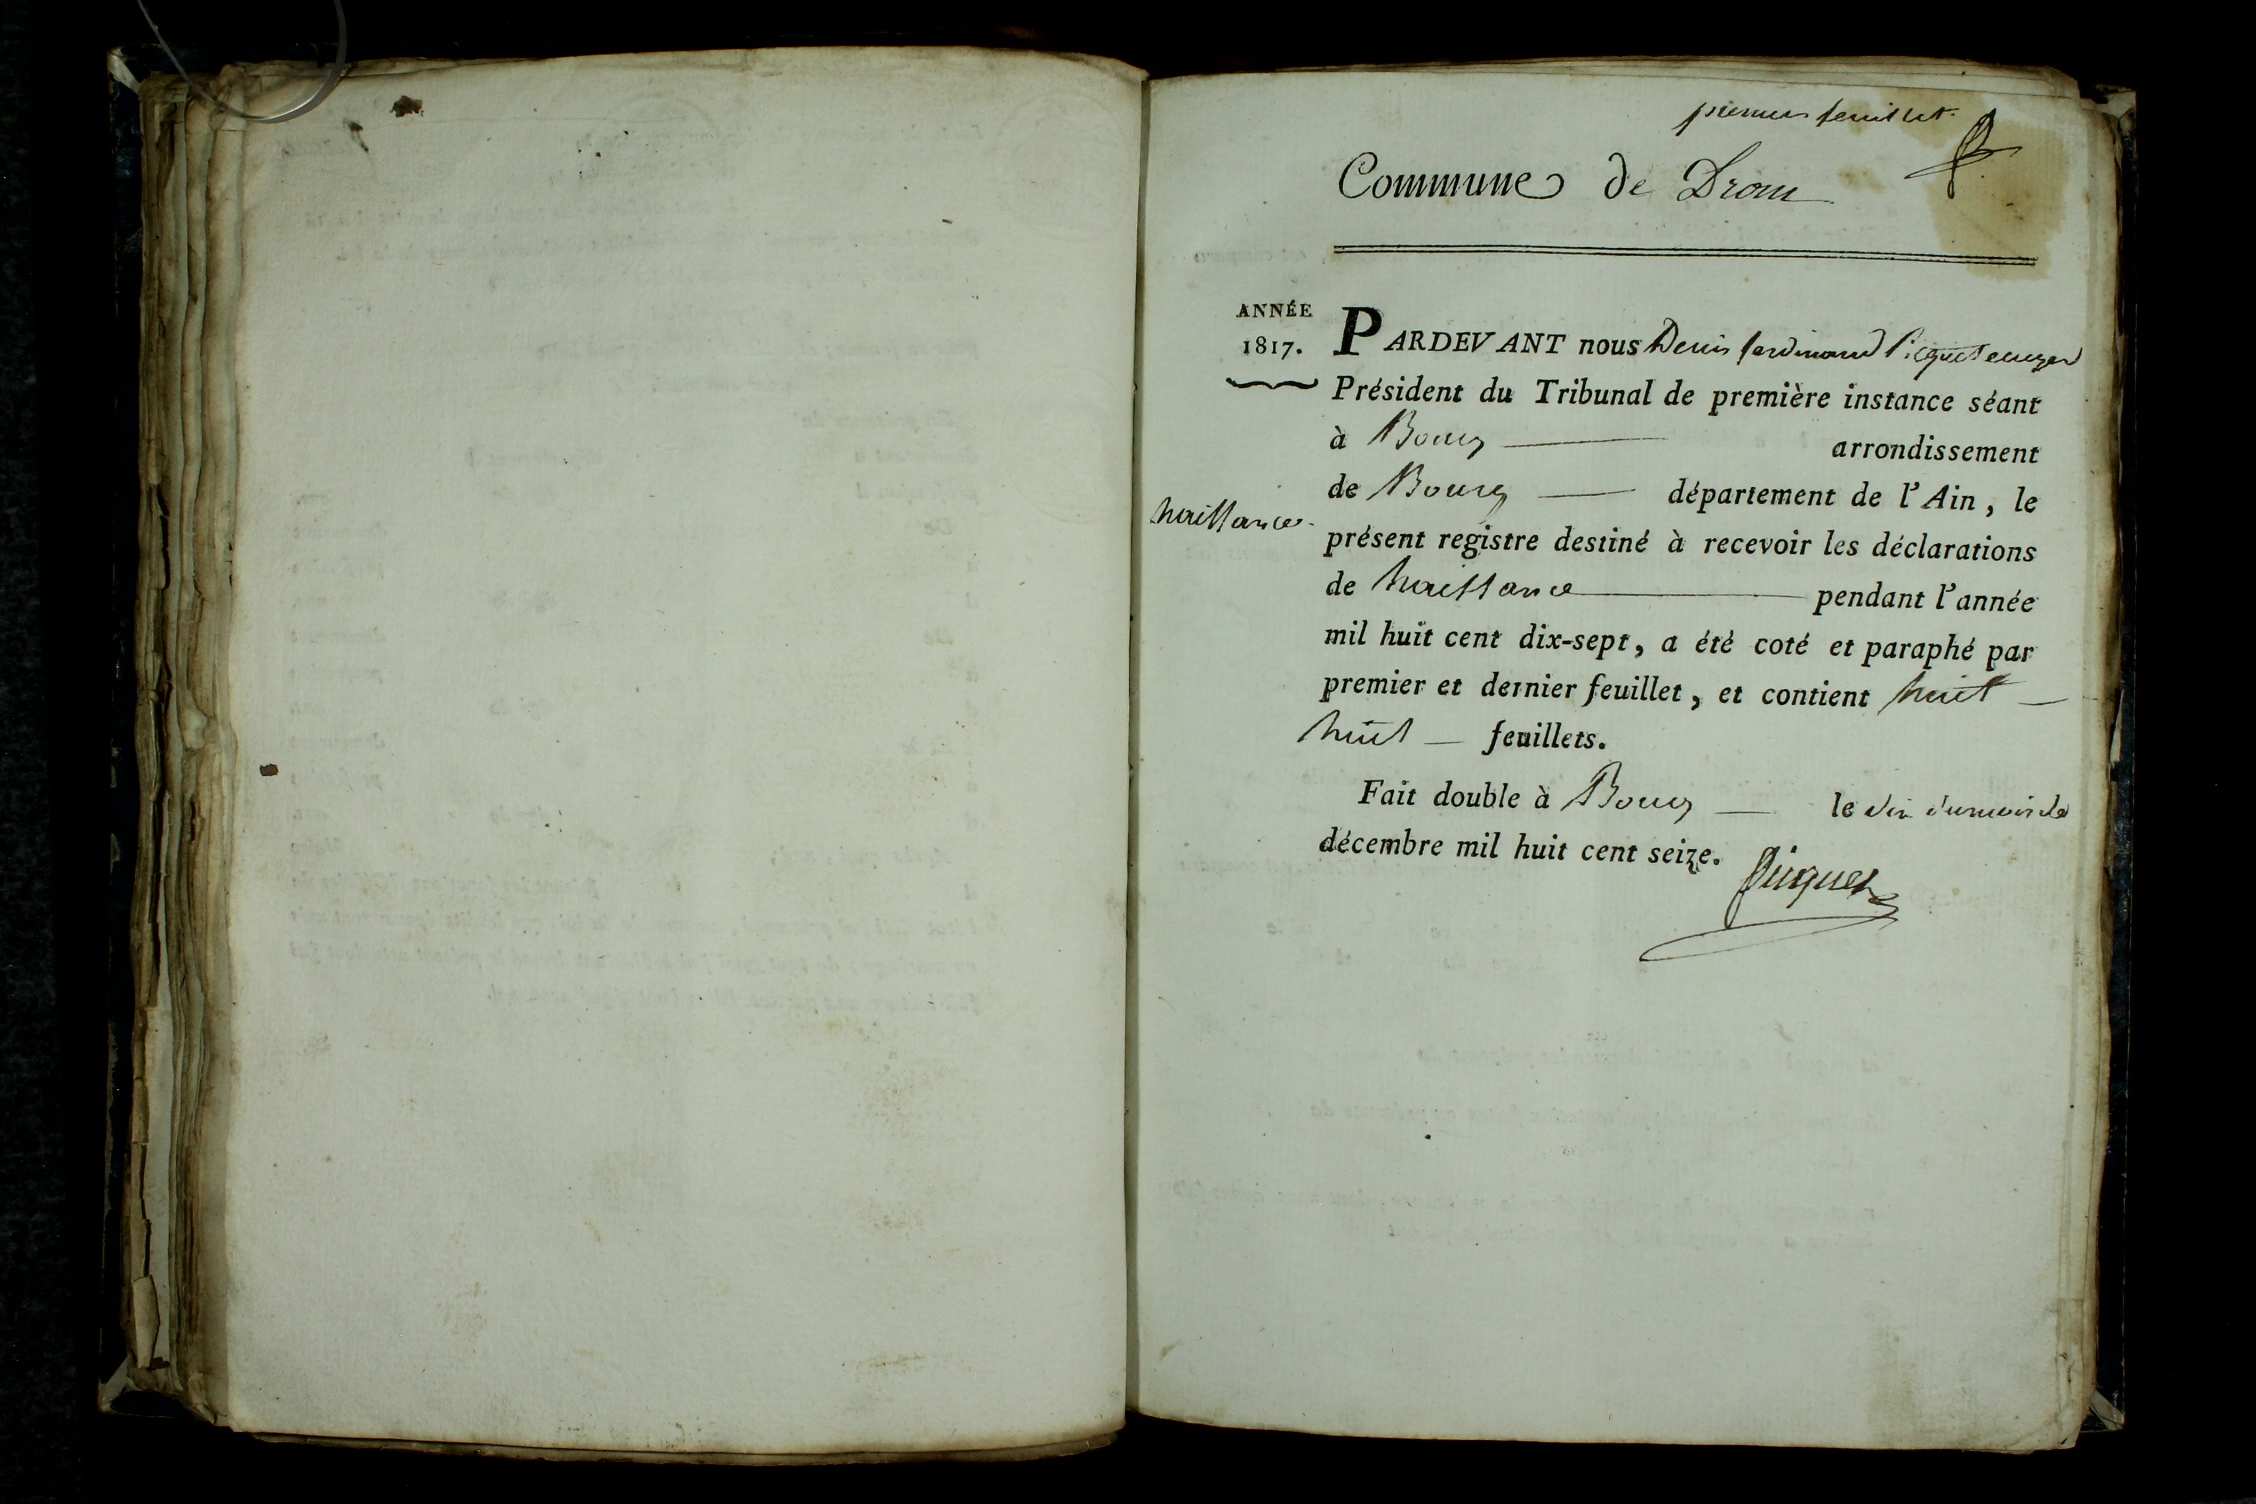 premier feuillet.
Commune de Drom
ANNÉE
1817.
PARDEVANT nous Denis ferdinand Picquet ecuyer
Président du Tribunal de première instance séant
à Bourg — arrondissement
de Bourg — département de l'Ain, le
Naissance.
présent registre destiné à recevoir les déclarations
de Naissance — pendant l'année
mil huit cent dix-sept, a été coté et paraphé par
premier et dernier feuillet, et contient huit —
huit — feuillets.
Fait double à Bourg — le dix du mois de
décembre mil huit cent seize.
Picquet